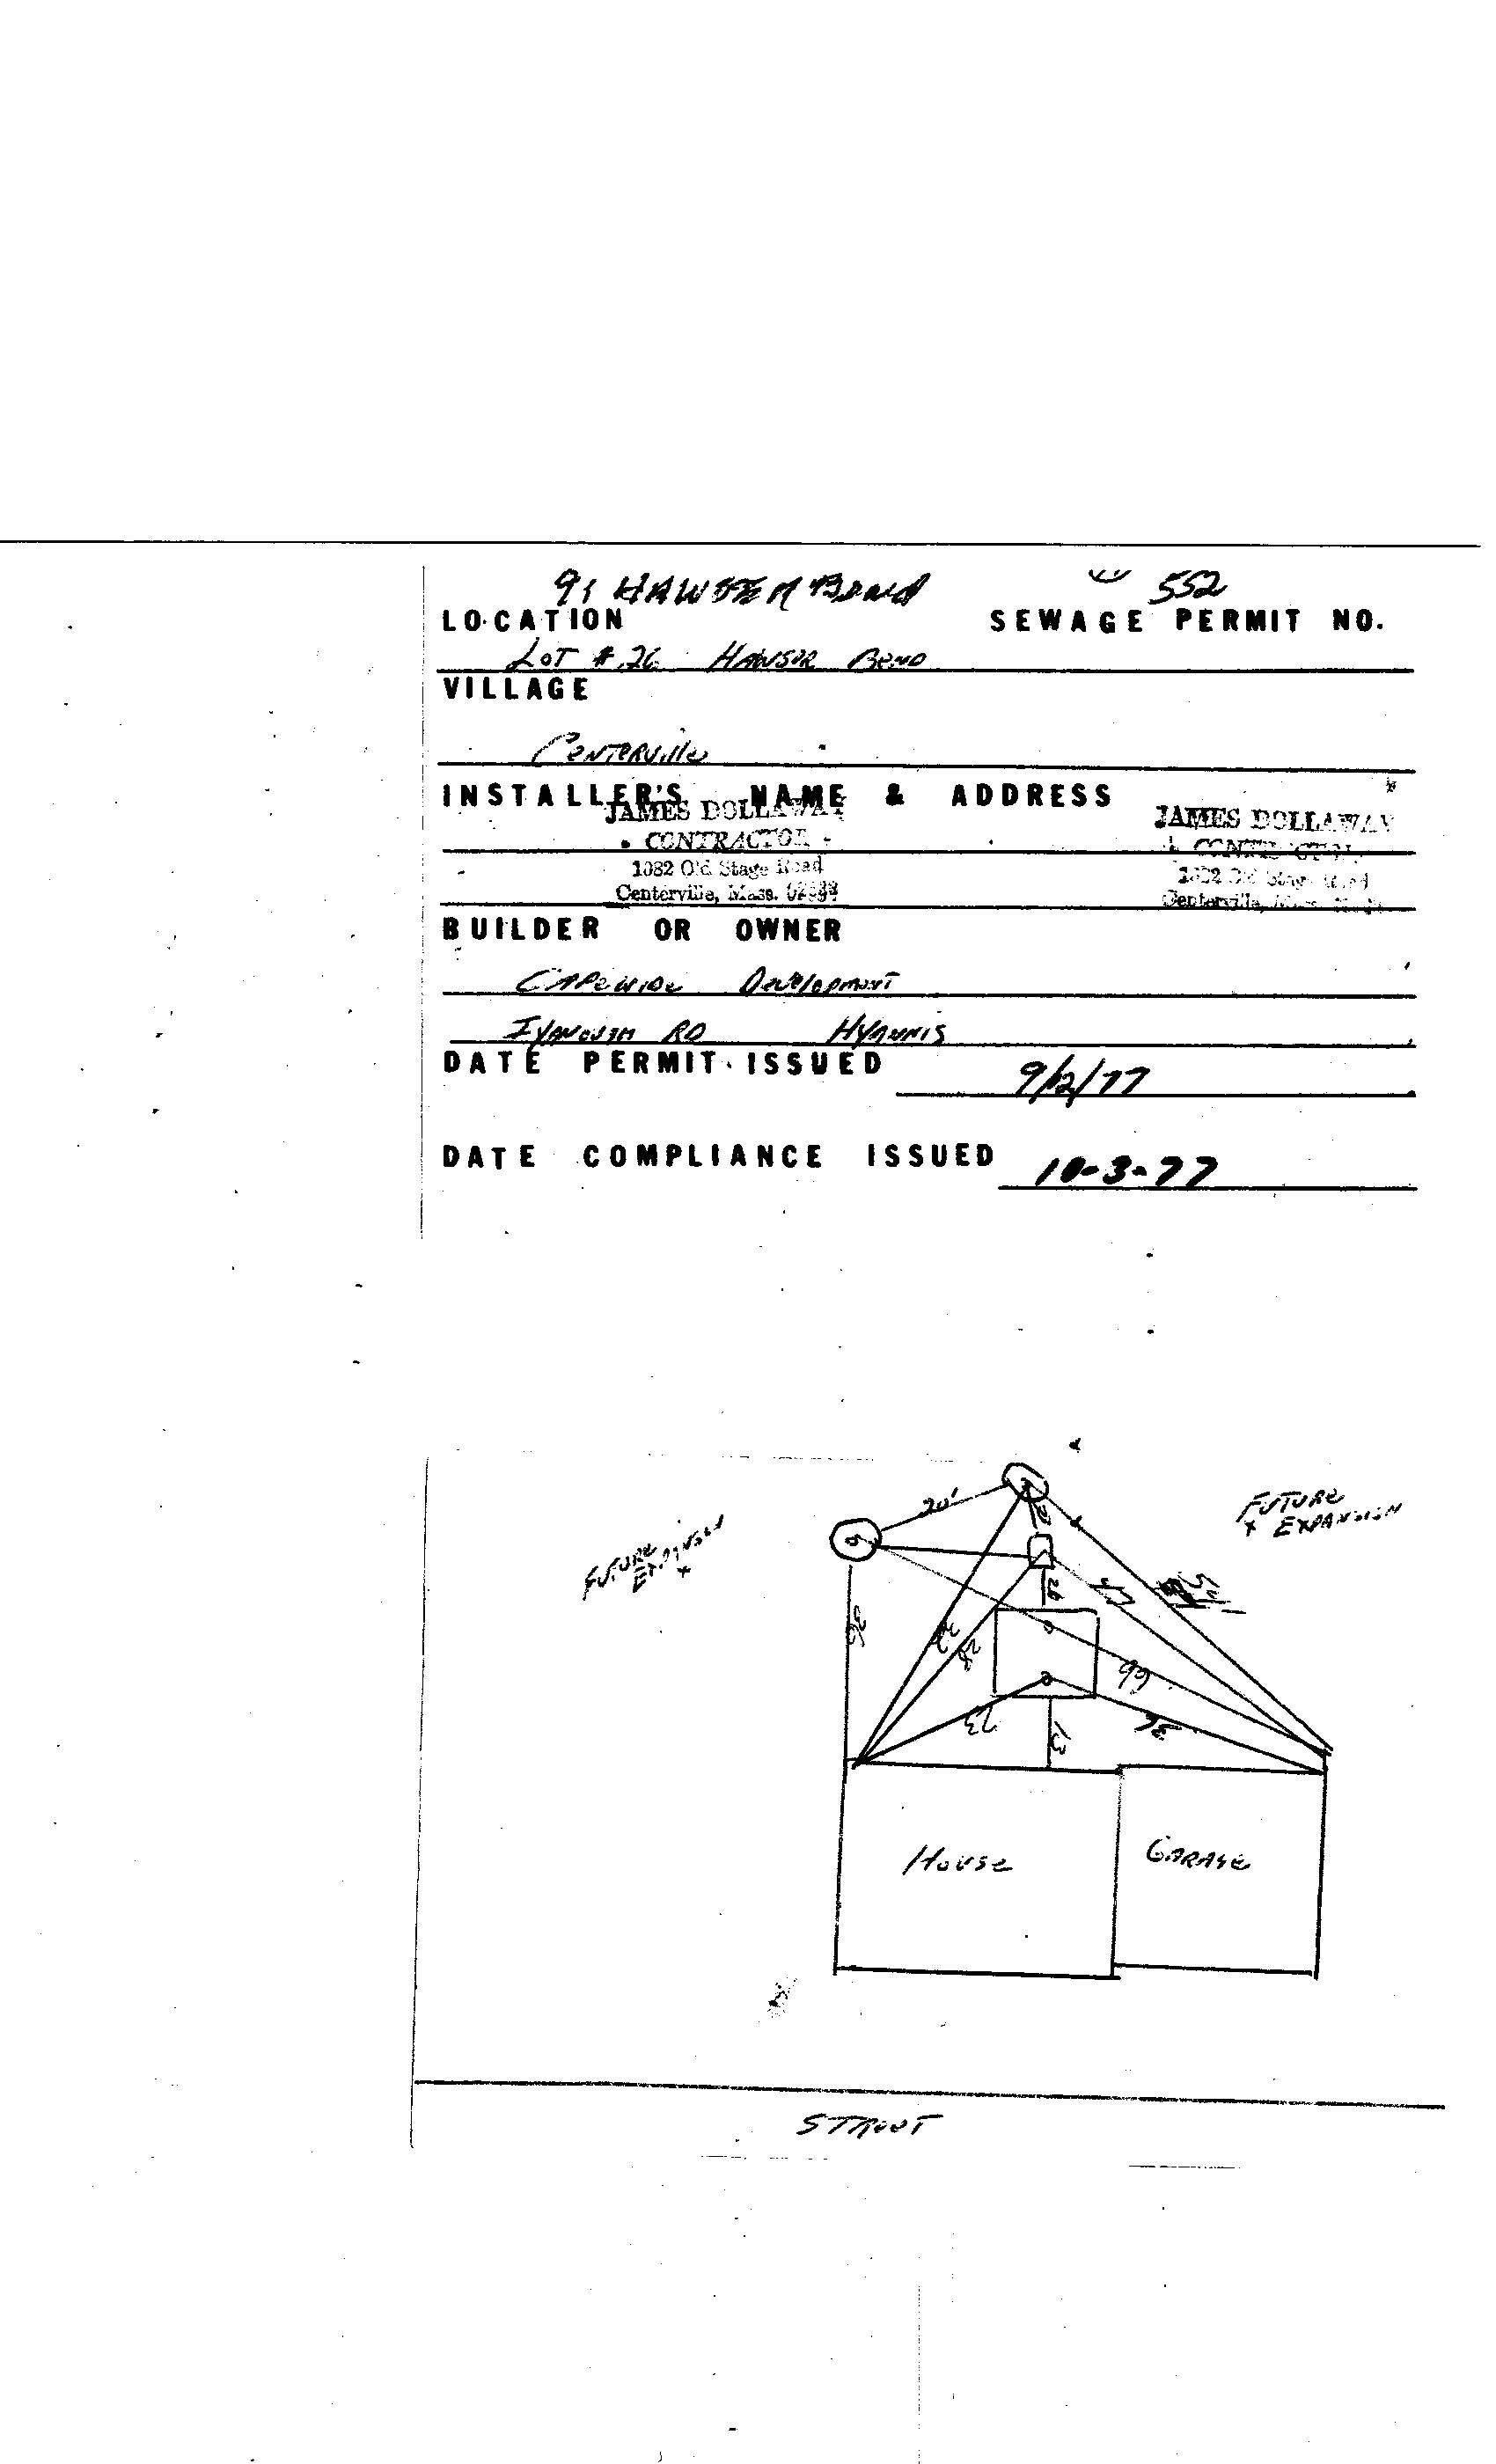 91 HAWSER Bend 552
LOCATION SEWAGE PERMIT NO.
LOT # 26 HAWSOR BEND
VILLAGE
CENTERVille
INSTALLER'S NAME & ADDRESS
JAMES DOLLAWAY JAMES DOLLAWAY
CONTRACTOR CONTRACTOR
1082 Old Stage Road 1082 Old Stage Road
Centerville, Mass. Centerville, Mass.
BUILDER OR OWNER
CAPEWIDE Development
IYANOUGH RD HYANNIS
DATE PERMIT ISSUED 9/12/77
DATE COMPLIANCE ISSUED 10-3-77
20'
FUTURE
x EXPANSION
FUTURE
EXPANSION
x
26
36
28
66
23
13
36
House GARAGE
STREET